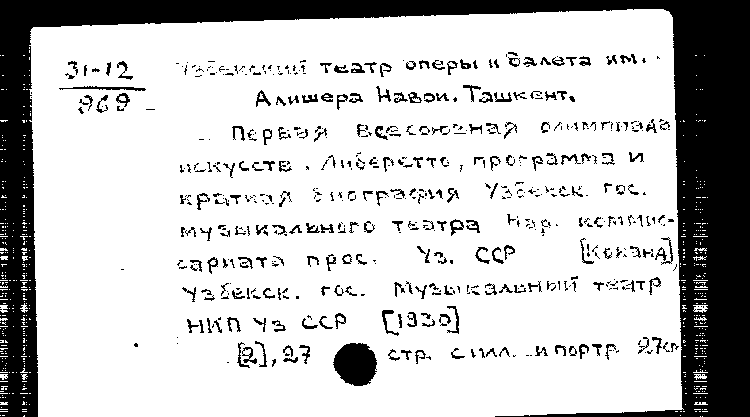 31-12
969
Узбекский театр оперы и балета им.
Алишера Навои. Ташкент.
Первая Всесоюзная олимпиада
искусств. Либеретто, программа и
краткая биография Узбекск. гос.
музыкального театра Нар. коммис-
сариата прос. Уз. ССР [Коканд],
Узбекск. гос. Музыкальный театр
НКП Уз ССР [1930]
[2], 27 стр. с илл. и портр 27см